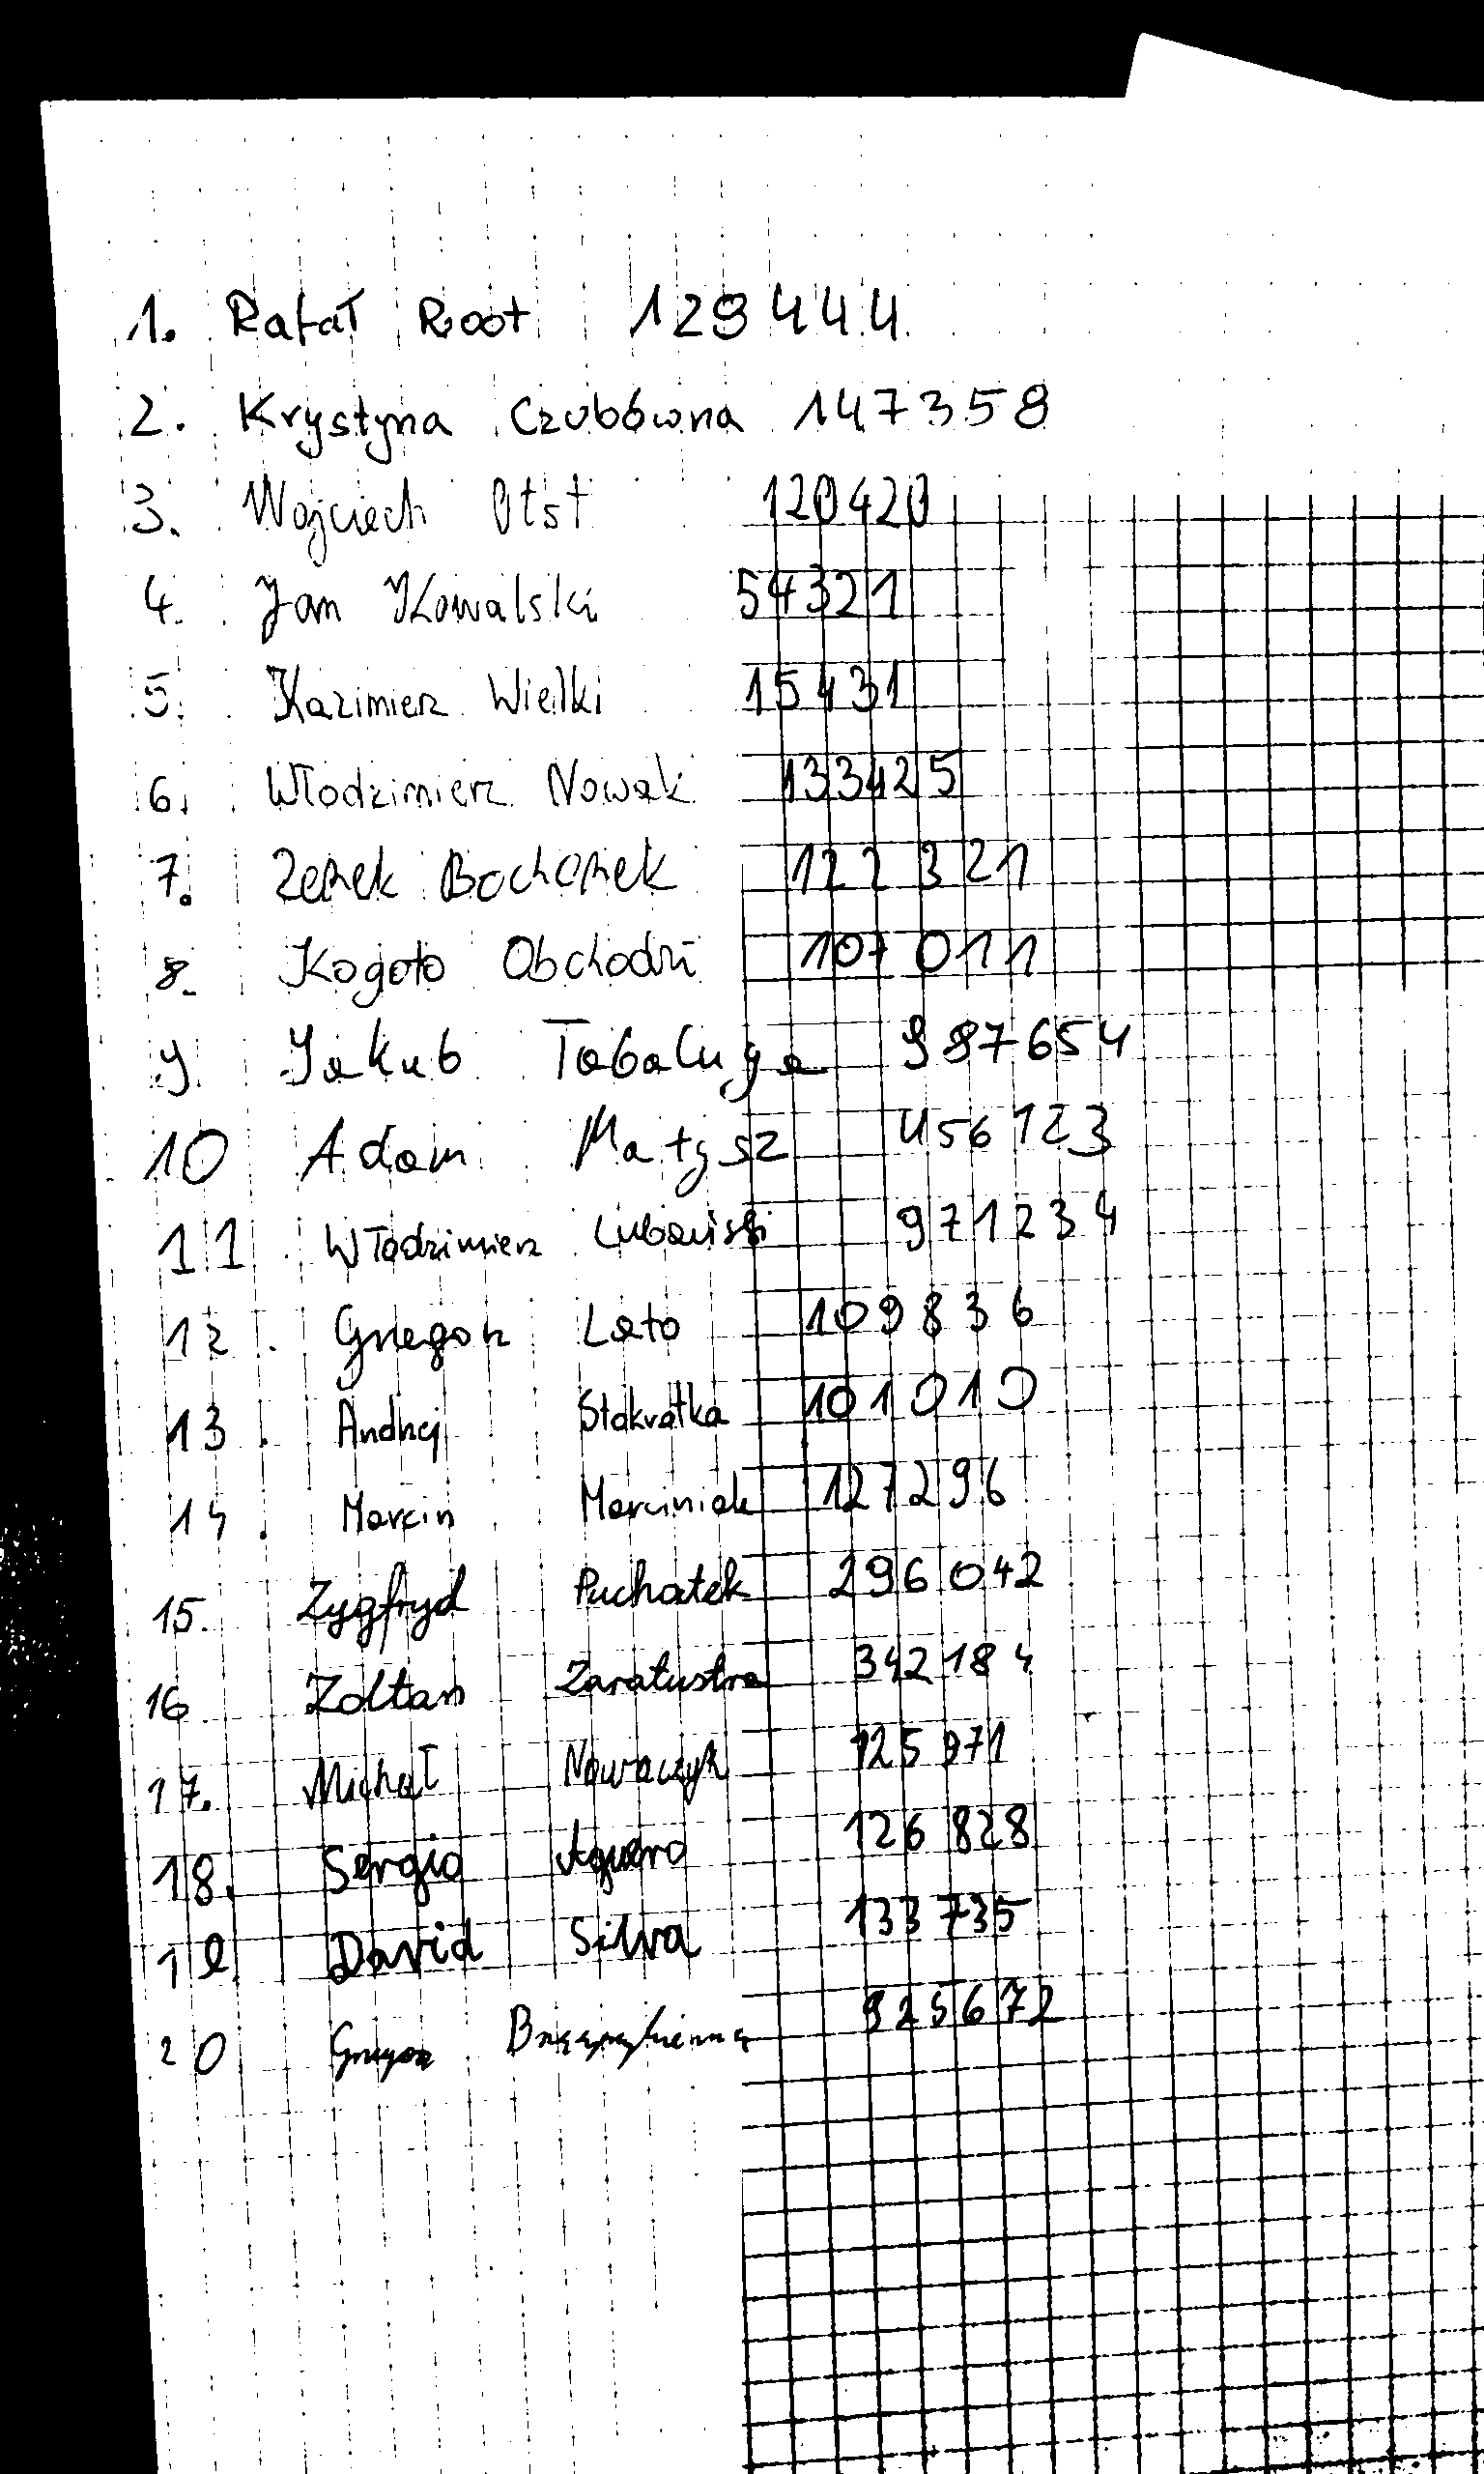 1. Rafał Root 129444
2. Krystyna Czubówna 147358
3. Wojciech Otst 120420
4. Jan Kowalski 54321
5. Kazimierz Wielki 15431
6. Włodzimierz Nowak 133425
7. Zenek Bochenek 122321
8. Kogoto Obchodzi 107011
9 Jakub Tabaluga 987654
10 Adam Małysz 456123
11. Włodzimierz Lubański 971234
12. Grzegorz Lato 109836
13. Andrzej Stokrotka 101010
14. Marcin Marciniak 127296
15. Zygfryd Puchatek 296042
16 Zoltan Zaratustra 342184
17. Michał Nowaczyk 125971
18. Sergio Aguero 126828
19. David Silva 133735
20 Grzegorz 925672